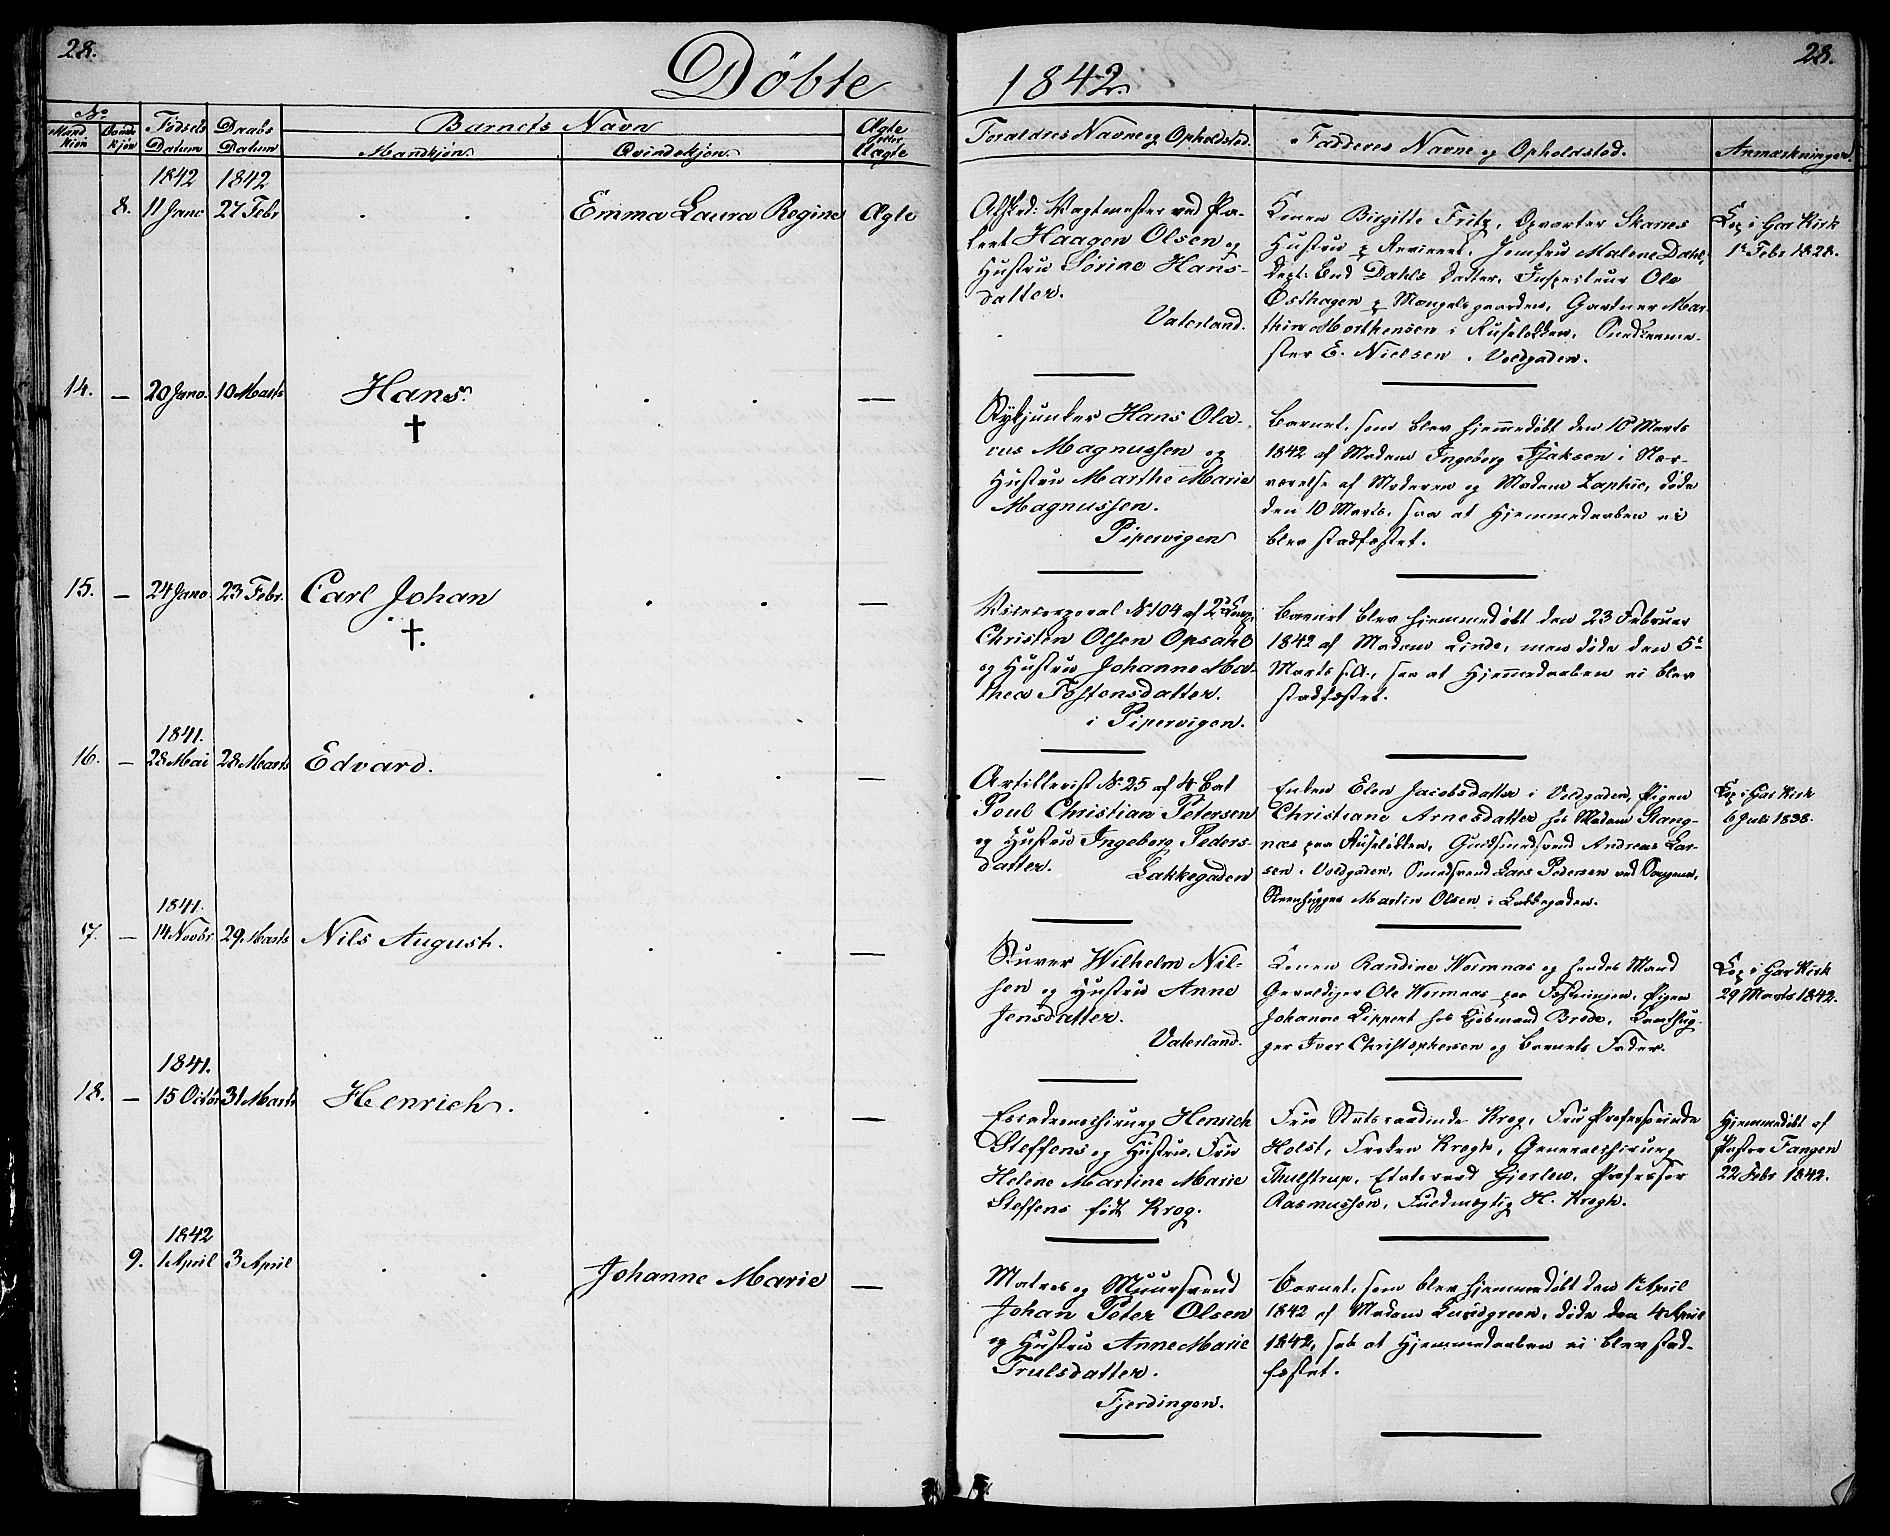 28.
Döbte
1842.
28.
No
Mand kiøn
Qvinde kjøn
Fødsels Datum
Daabs Datum
Barnets Navn
Mandkjøn.
Qvindekjøn.
Ægte eller Uægte
Foraldres Navne og Opholdsted.
Fadderes Navne og Opholdsted.
Anmærkninger.
1842 1842
8. 11 Janr 27 Febr . . Emma Laura Regine Ægte
Afsked: Vagtmester ved Pa-
keet Haagen Olsen og
Hustru Sørine Hans-
datter.
Vaterland.
Konen Birgitte Fritz, Opvarter Skarres
Hustru p Revieret, Jomfru Malene Dahl,
Dahls Datter, Inspecteur Ole
Østhagen p Mangelsgaarden, Gartner Mar-
thin Morthensen i Ruseløkken, Snedkerme-
ster E. Nielsen i Voldgaden.
Cop. i Gar Kirk
1 Febr 1828.
14. — 20 Janr. 10 Marts Hans. . . —
†
Rykjunker Hans Ola-
rus Magnussen og
Hustru Marthe Marie
Magnussen.
Pipervigen
Barnet, som blev hjemmedøbt den 10 Marts
1842 af Madam Ingeborg Isaksen i Nær-
værelse af Moderen og Madam Zaphie, døde
den 10 Marts, saa at Hjemmedaaben ei
blev stadfæstet.
15. — 24 Janr. 23 Febr. Carl Johan . . —
†.
Vicecorporal No 104 af 2det Comp.
Christen Olsen Opsahl
og Hustru Johanne Ma-
thea Tostensdatter.
i Pipervigen.
Barnet blev hjemmedøbt den 23 Februar
1842 af Madam Linde, men døde den 5te
Marts s.A., saa at Hjemmedaaben ei blev
stadfæstet.
1841.
16. — 28 Mai 28 Marts Edvard. . . —
Artillerist No 25 af 4 Bat
Poul Christian Petersen
og Hustru Ingeborg Peders-
datter.
Lakkegaden
Enken Elen Jacobsdatter i Voldgaden, Pigen
Christiane Arnesdatter hos Madam Stang-
nas paa Ruseløkken, Guldsmedsvend Andreas Lar-
sen i Voldgaden, Smedsvend Lars Pedersen ved
Steenhugger Martin Olsen i Lakkegaden.
Cop. i Gar Kirk
6 Juli 1838.
1841.
17. — 14 Novbr 29 Marts Nils August. . . —
Ruver Wilhelm Nil-
sen og Hustru Anne
Jensdatter.
Vaterland.
Konen Randine Wermnas og hendes Mand
Gevaldiger Ole Wermnas paa Fæstningen, Pigen
Johanne Lippert hos Kjøbmand Brede,
ger Iver Christophersen og Barnets Fader.
Cop. i Gar Kirk
29 Marts 1842.
1841.
18. — 15 Octbr 31 Marts Henrich. . . —
Escadronschirurg Henrich
Steffens og Hustru, Fru
Helene Martine Marie
Steffens født Krog.
Fru Statsraadinde Krog, Fru Professorinde
Holst, Frøken Krogh, Generalchirurg
Thulstrup, Etatsraad Gjerlew, Professor
Rasmussen, Fuldmægtig H. Krogh.
Hjemmedøbt af
Pastor Tangen
22 Febr 1842.
1842
9. 1 April 3 April . . Johanne Marie —
Matros og Muursvend
Johan Peter Olsen
og Hustru Anne Marie
Trulsdatter.
Fjerdingen.
Barnet, som blev hjemmedøbt den 1 April
1842 af Madam Lundgreen, døde den 4 April
1842, saa at Hjemmedaaben ei blev stad-
fæstet.